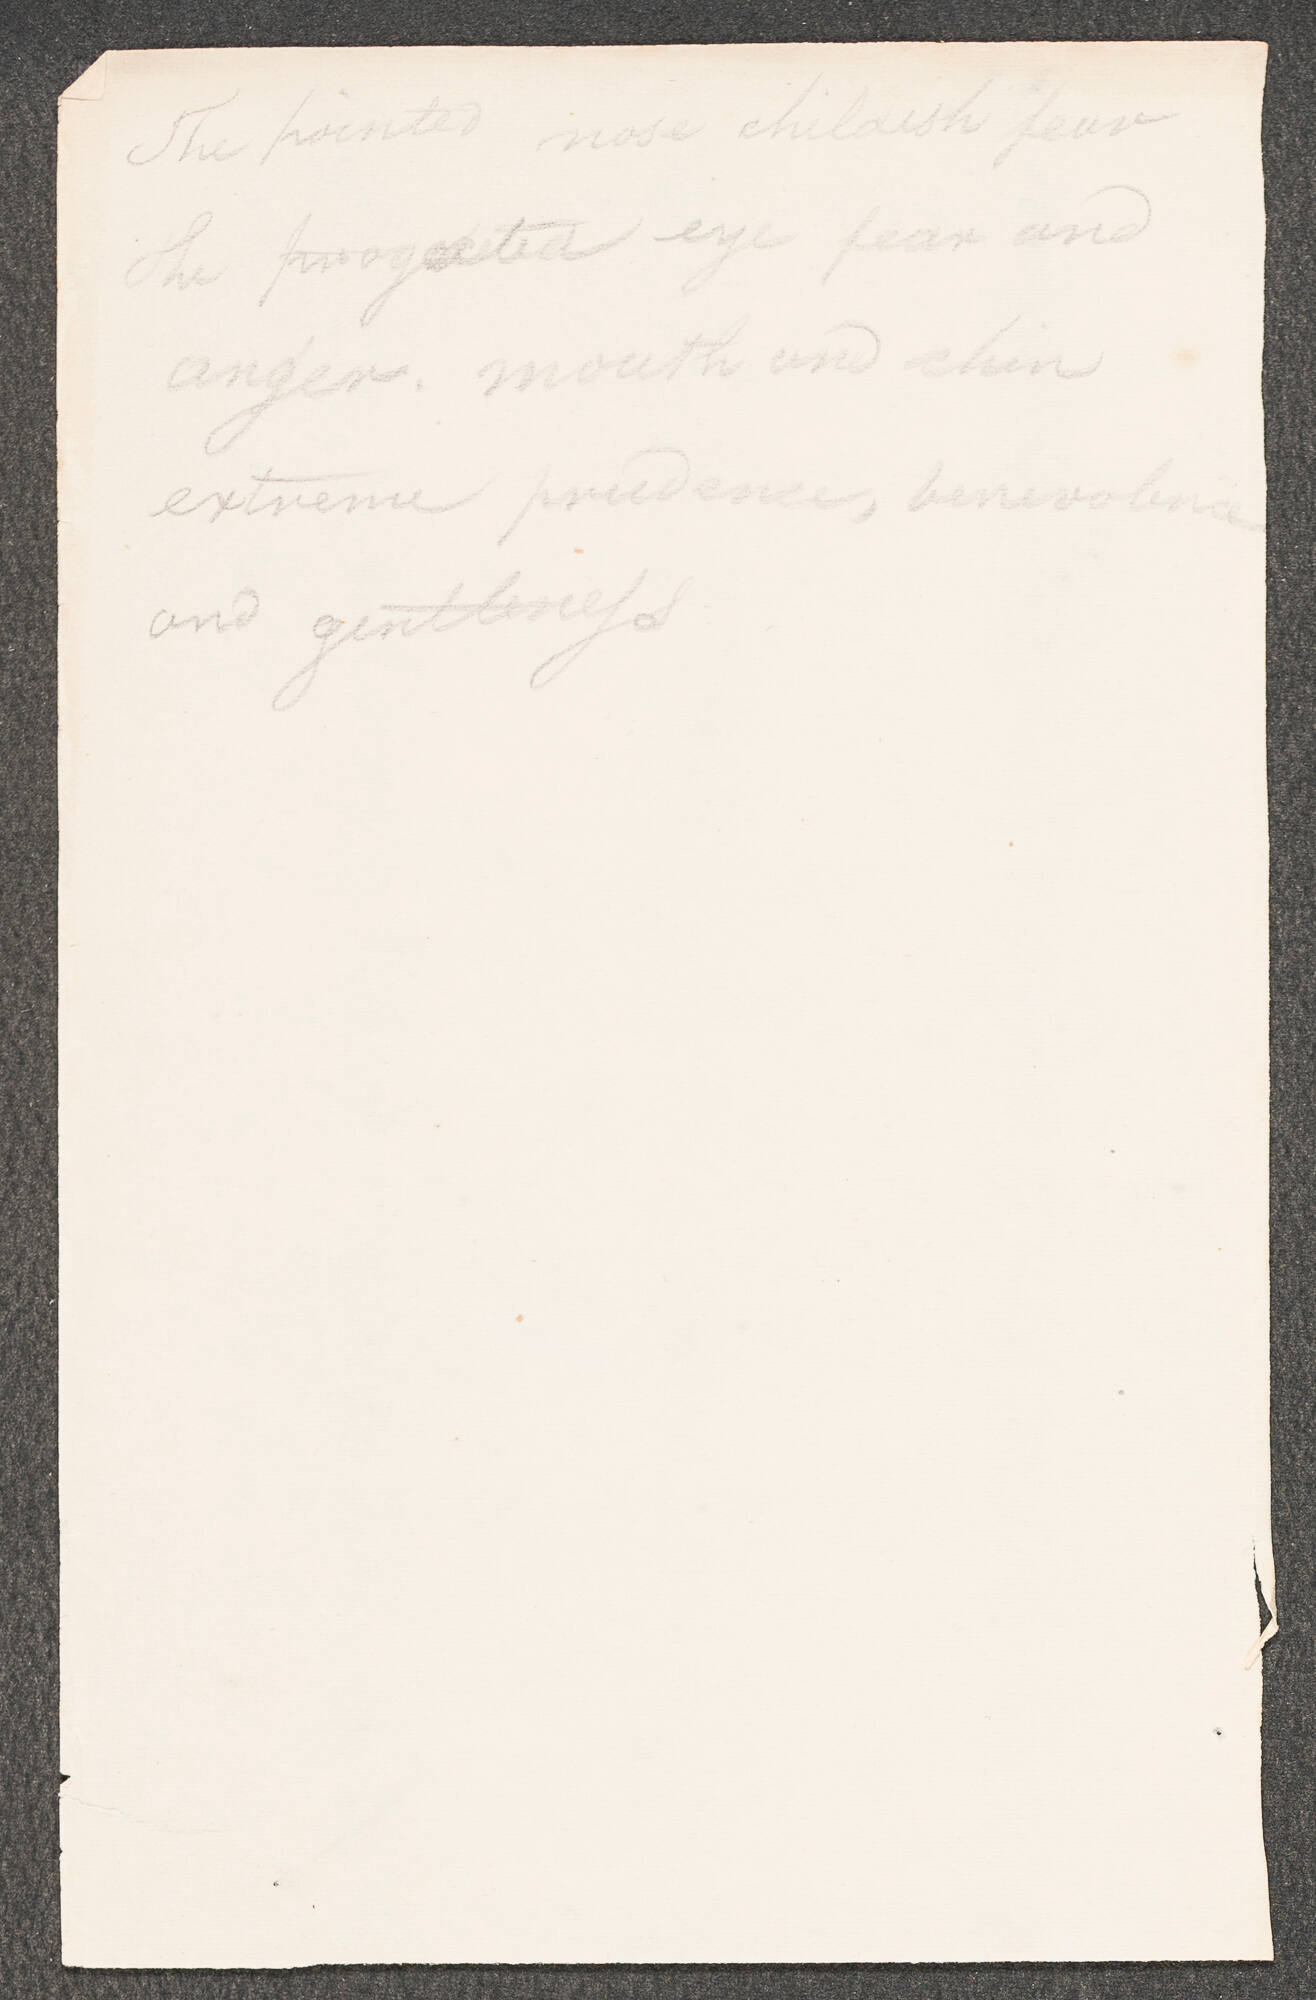 The pointed nose childish fear
The progected eye fear and
anger. mouth and chin
extreme prudence, benevolence
and gentleness